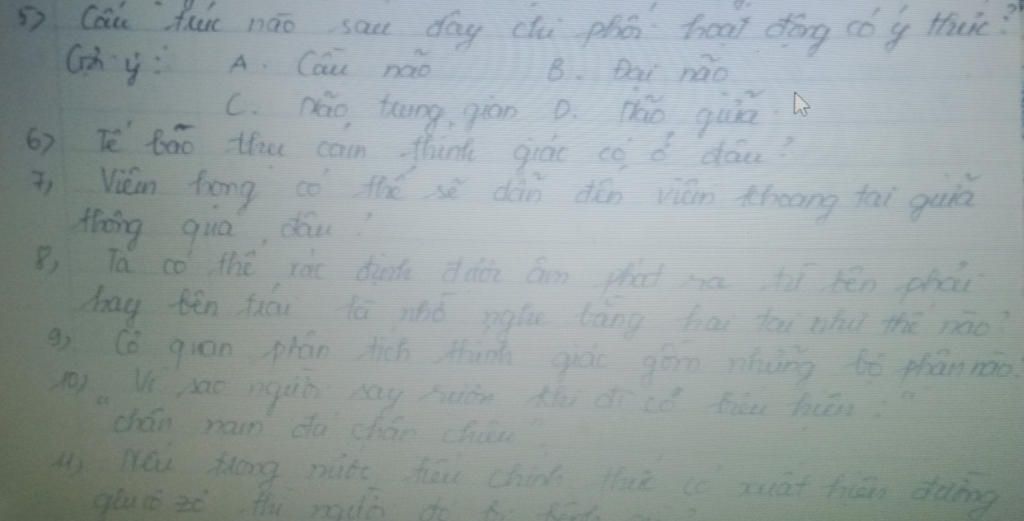 5) Cấu trúc nào sau đây chi phối hoạt động có ý thức?
Gợi ý: A. Cầu não B. Đại não
C. Não trung gian D. Não giữa.
6) Tế bào thụ cảm thính giác có ở đâu?
7) Viêm họng có thể sẽ dẫn đến viêm khoang tai giữa
thông qua đâu?
8) Ta có thể xác định được âm phát ra từ bên phải
hay bên trái là nhờ nghe bằng hai tai như thế nào?
9) Cơ quan phân tích thính giác gồm những bộ phận nào.
10) Vì sao người say rượu khi đi có biểu hiện: "
"chân nam đá chân chiêu"
11) Nếu trong nước tiểu chính thức có xuất hiện đường
glucôzơ thì người đó bị bệnh gì?